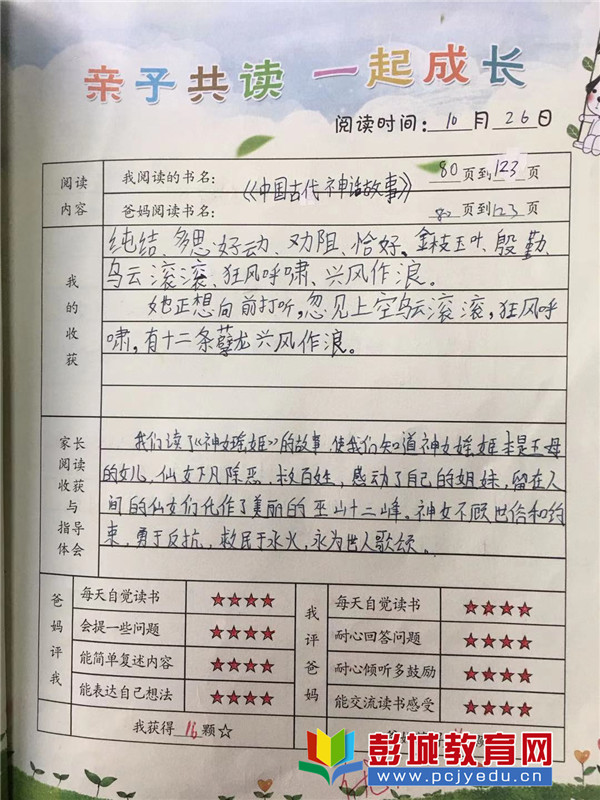 亲子共读 一起成长
阅读时间：10月26日
阅读内容
我阅读的书名：《中国古代神话故事》 80页到123页
爸妈阅读书名： 80页到123页
我的收获
纯结、多思好动、劝阻、恰好、金枝玉叶、殷勤、
乌云滚滚、狂风呼啸、兴风作浪。
她正想向前打听，忽见上空乌云滚滚，狂风呼
啸，有十二条孽龙兴风作浪。
家长阅读收获与指导体会
我们读了《神女瑶姬》的故事，使我们知道神女瑶姬本是王母
的女儿，仙女下凡除恶，救百姓，感动了自己的姐妹，留在人
间的仙女们化作了美丽的巫山十二峰。神女不顾世俗和约
束，勇于反抗，救民于水火，永为世人歌颂。
爸妈评我
每天自觉读书 ★★★★
会提一些问题 ★★★★
能简单复述内容 ★★★★
能表达自己想法 ★★★★
我获得16颗☆
我评爸妈
每天自觉读书 ★★★★
耐心回答问题 ★★★★
耐心倾听多鼓励 ★★★★
能交流读书感受 ★★★★
彭城教育网
www.pcjyedu.cn